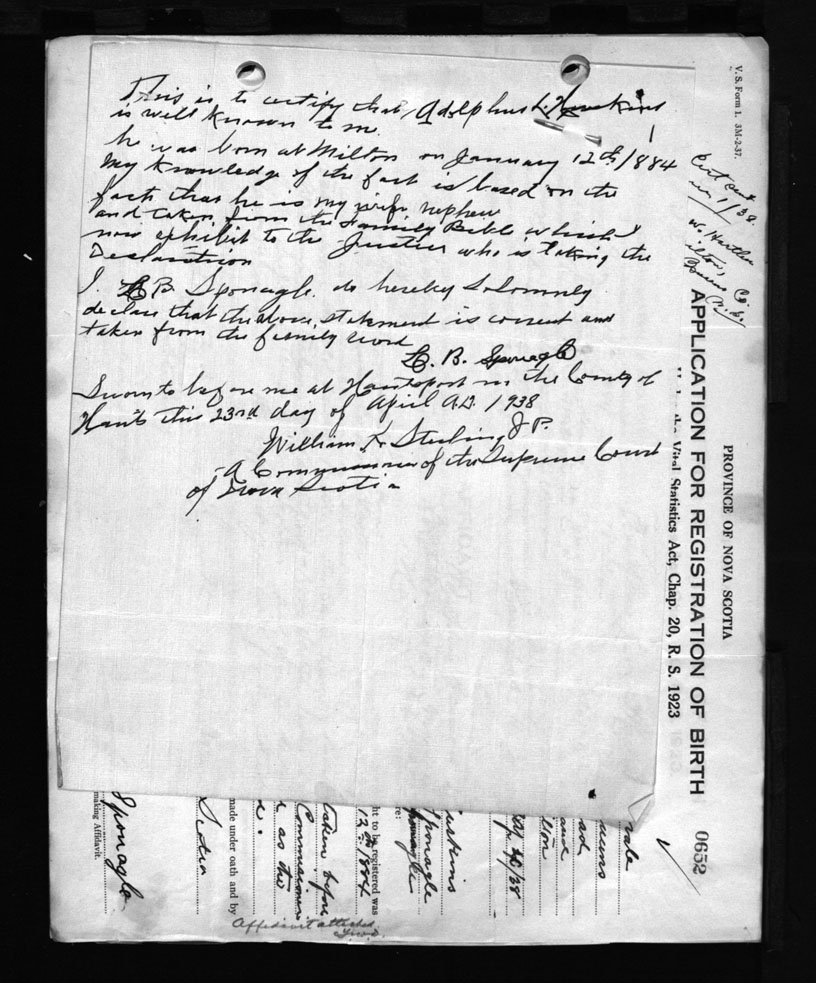 This is to certify that Adolphus L. Huskins
is well known to me.
he was born at Milton on January 12th/1884
My Knowledge of the fact is based on the
fact that he is my wifes nephew
and taken from the Family Bible which I
now exhibit to the Justice who is taking the
Declaration
I. B. Sponagle do hereby Solomnly
declare that the above statement is correct and
taken from the family record
B. Sponagle
Sworn to before me at Hantsport in the County of
Hants this 23rd day of April A.D. 1938
William K. Sterling J P.
A Commissioner of the Supreme Court
of Nova Scotia
V. S. Form 1. 3M-2-37.
PROVINCE OF NOVA SCOTIA
APPLICATION FOR REGISTRATION OF BIRTH
Vital Statistics Act, Chap. 20, R. S. 1923
0652
Sponagle
Sponagle
ht to be registered was
12th 1884
taken before
Commissioner
as the
made under oath and by
Scotia
Sponagle
making Affidavit.
Affidavit attached